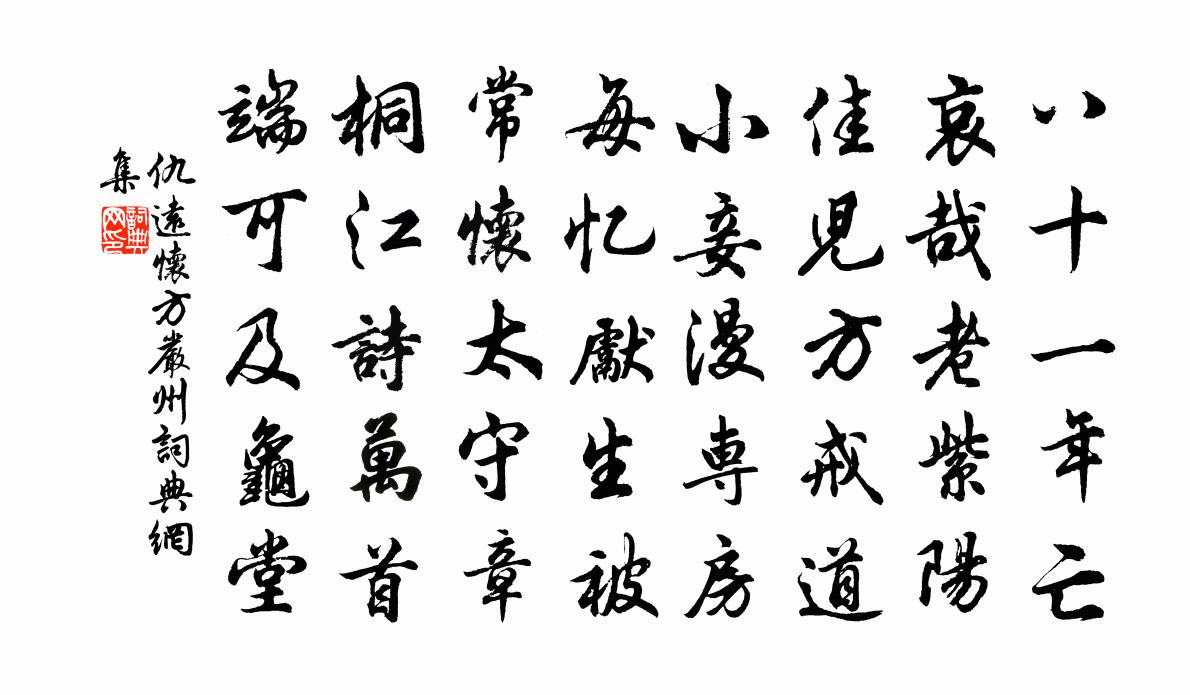 八十一年亡
哀哉老紫陽
佳児方戒道
小妾漫専房
每忆獻生被
常懷太守章
桐江詩萬首
端可及龜堂
仇遠懷方嚴州詞典網
集
詞典
网印